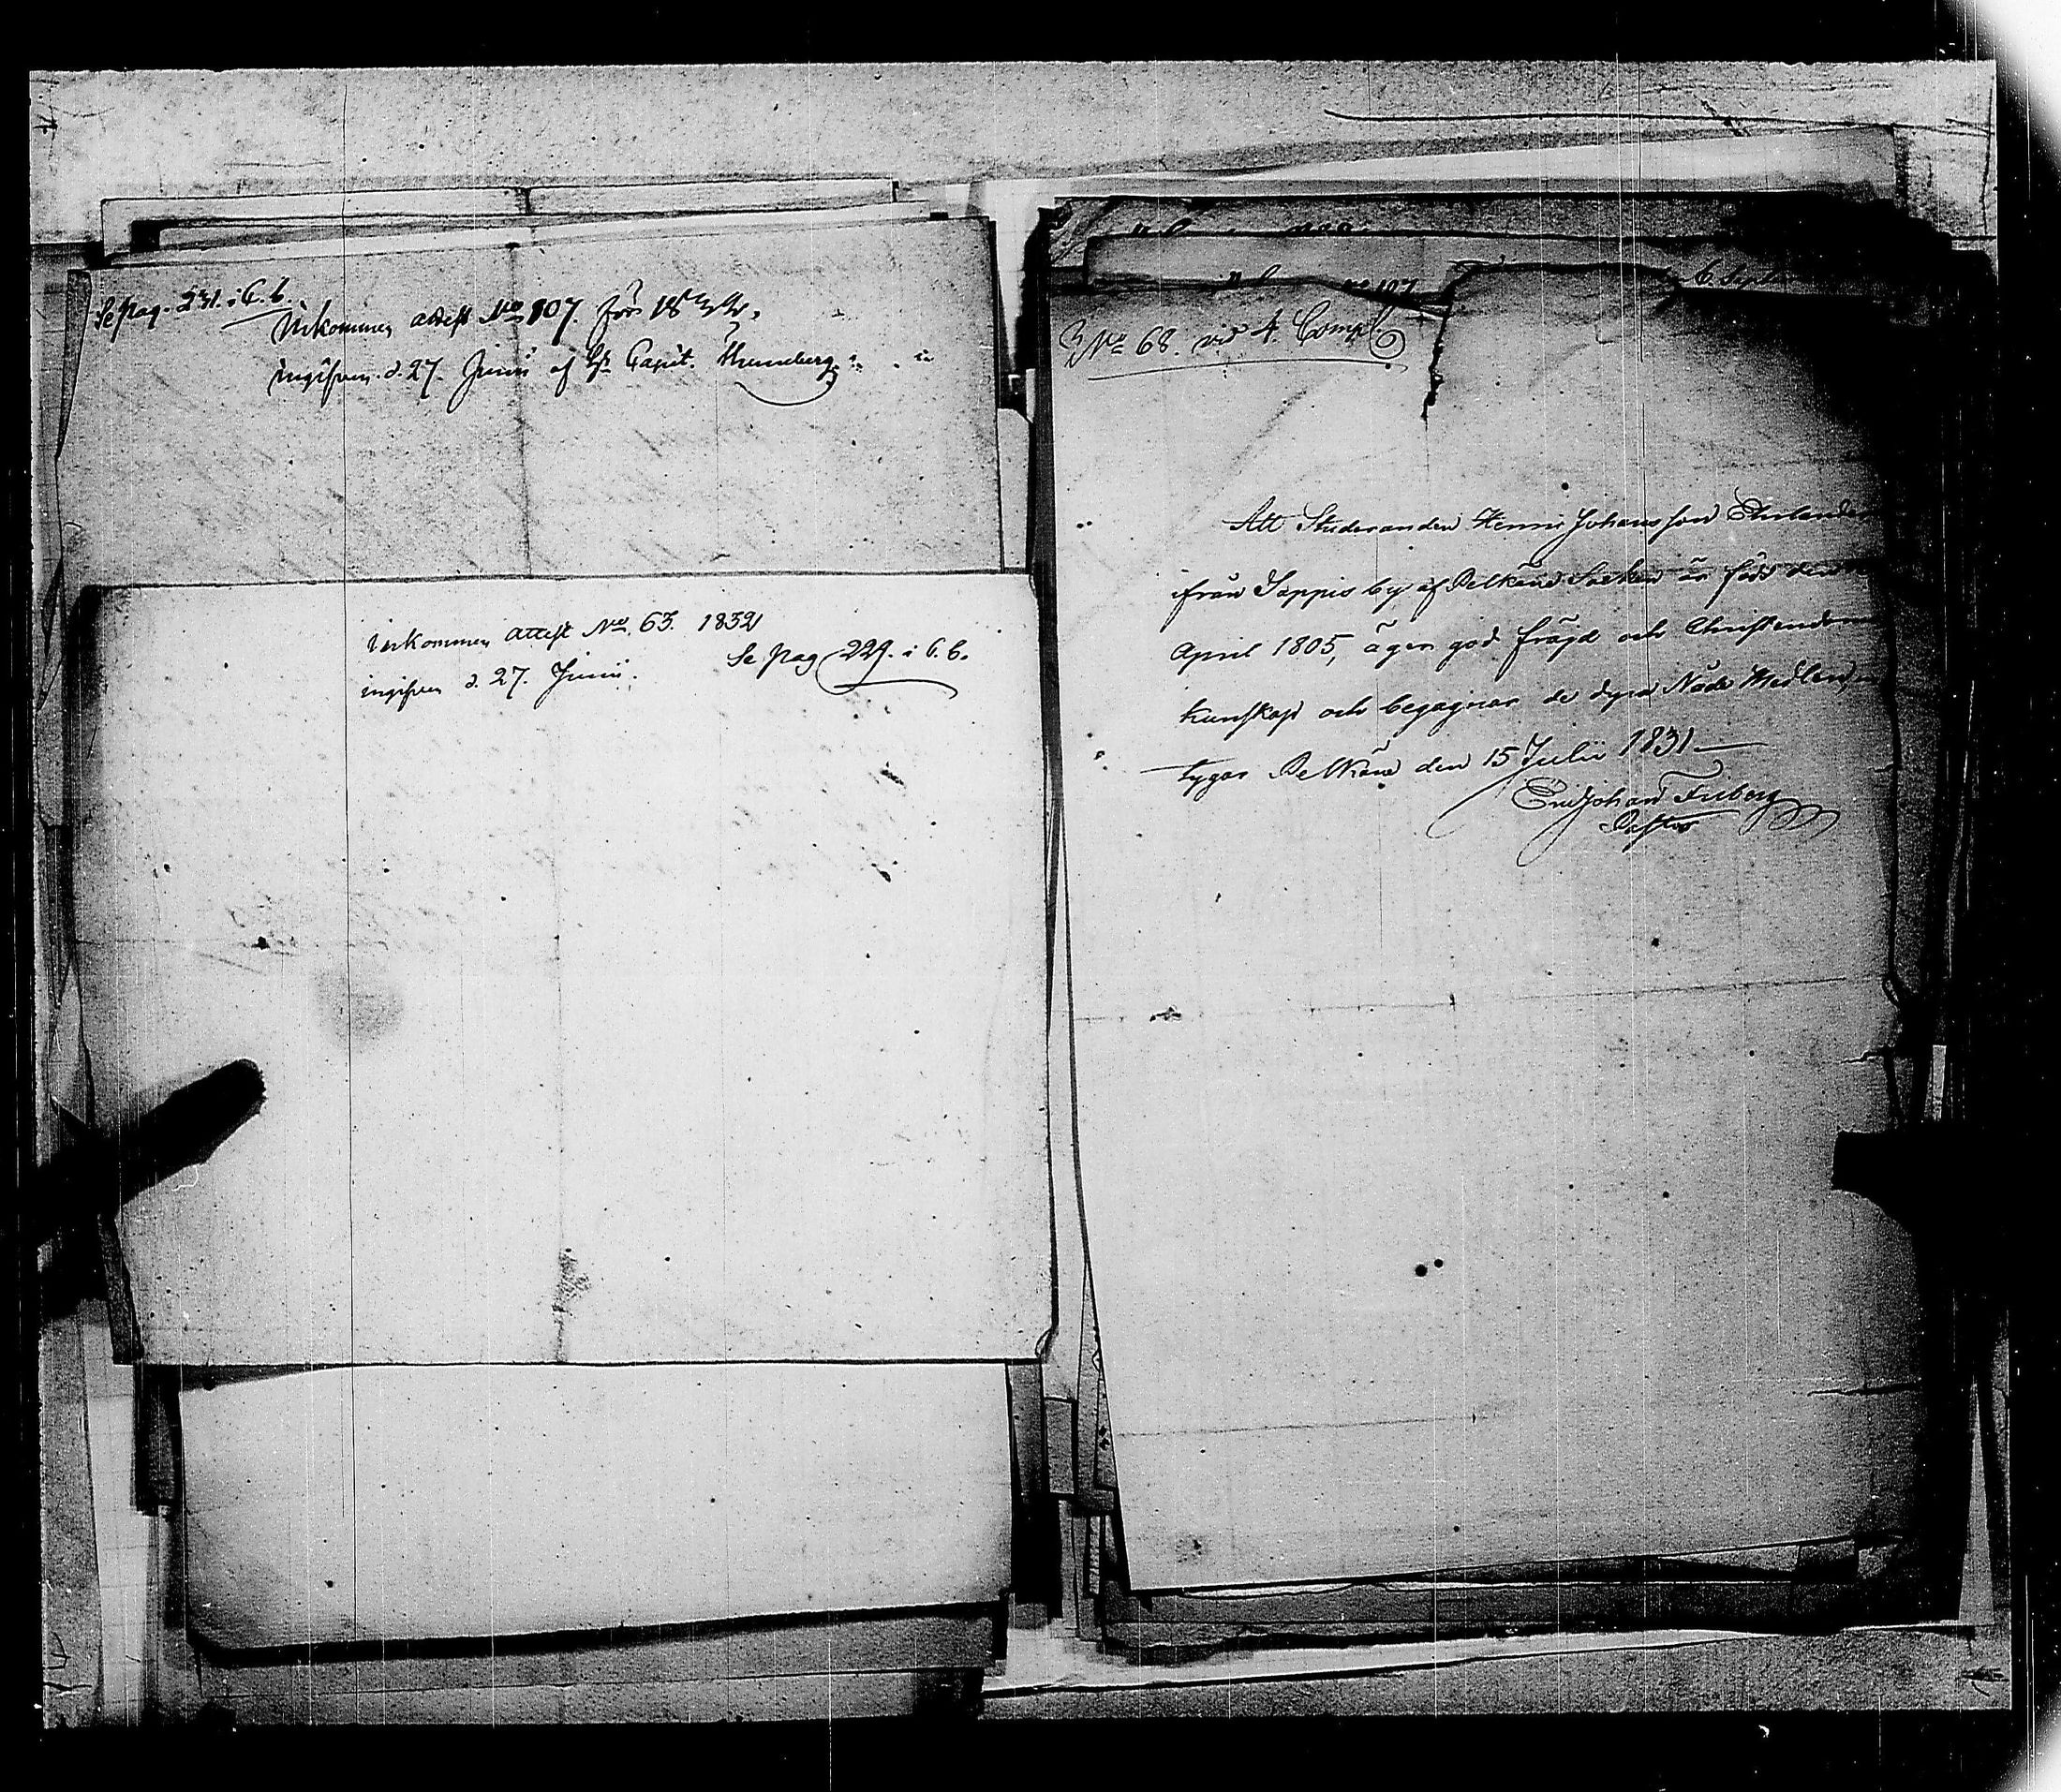 Se Pag. 231. i C. b.
Utkommen attest No 107. för 1832.
ingifven d. 27. Junii af Hr Capit. Thuneberg
Utkommen attest No. 63. 1832
Se Pag 229. i C. b.
ingifven d. 27. Junii.
No 68. vid 4. Comp.
Att Studeranden Henric Johansson
ifrån Sappis by af Pelkäne Socken är född den
April 1805, äger god frägd och Christendoms
kunskap och begagnar de dyra Nåde Medlen,
tygar Pelkäne den 15 Julii 1831
Eric Johan Friberg
Pastor